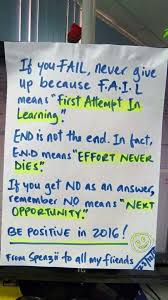 If you FAIL, never give
up because F.A.I.L
means "First Attempt In
Learning"
END is not the end. In fact,
E.N.D means "EFFORT NEVER
DIES."
If you get NO as an answer,
remember NO means "NEXT
OPPORTUNITY."
BE POSITIVE in 2016!
From Spenzii to all my friends